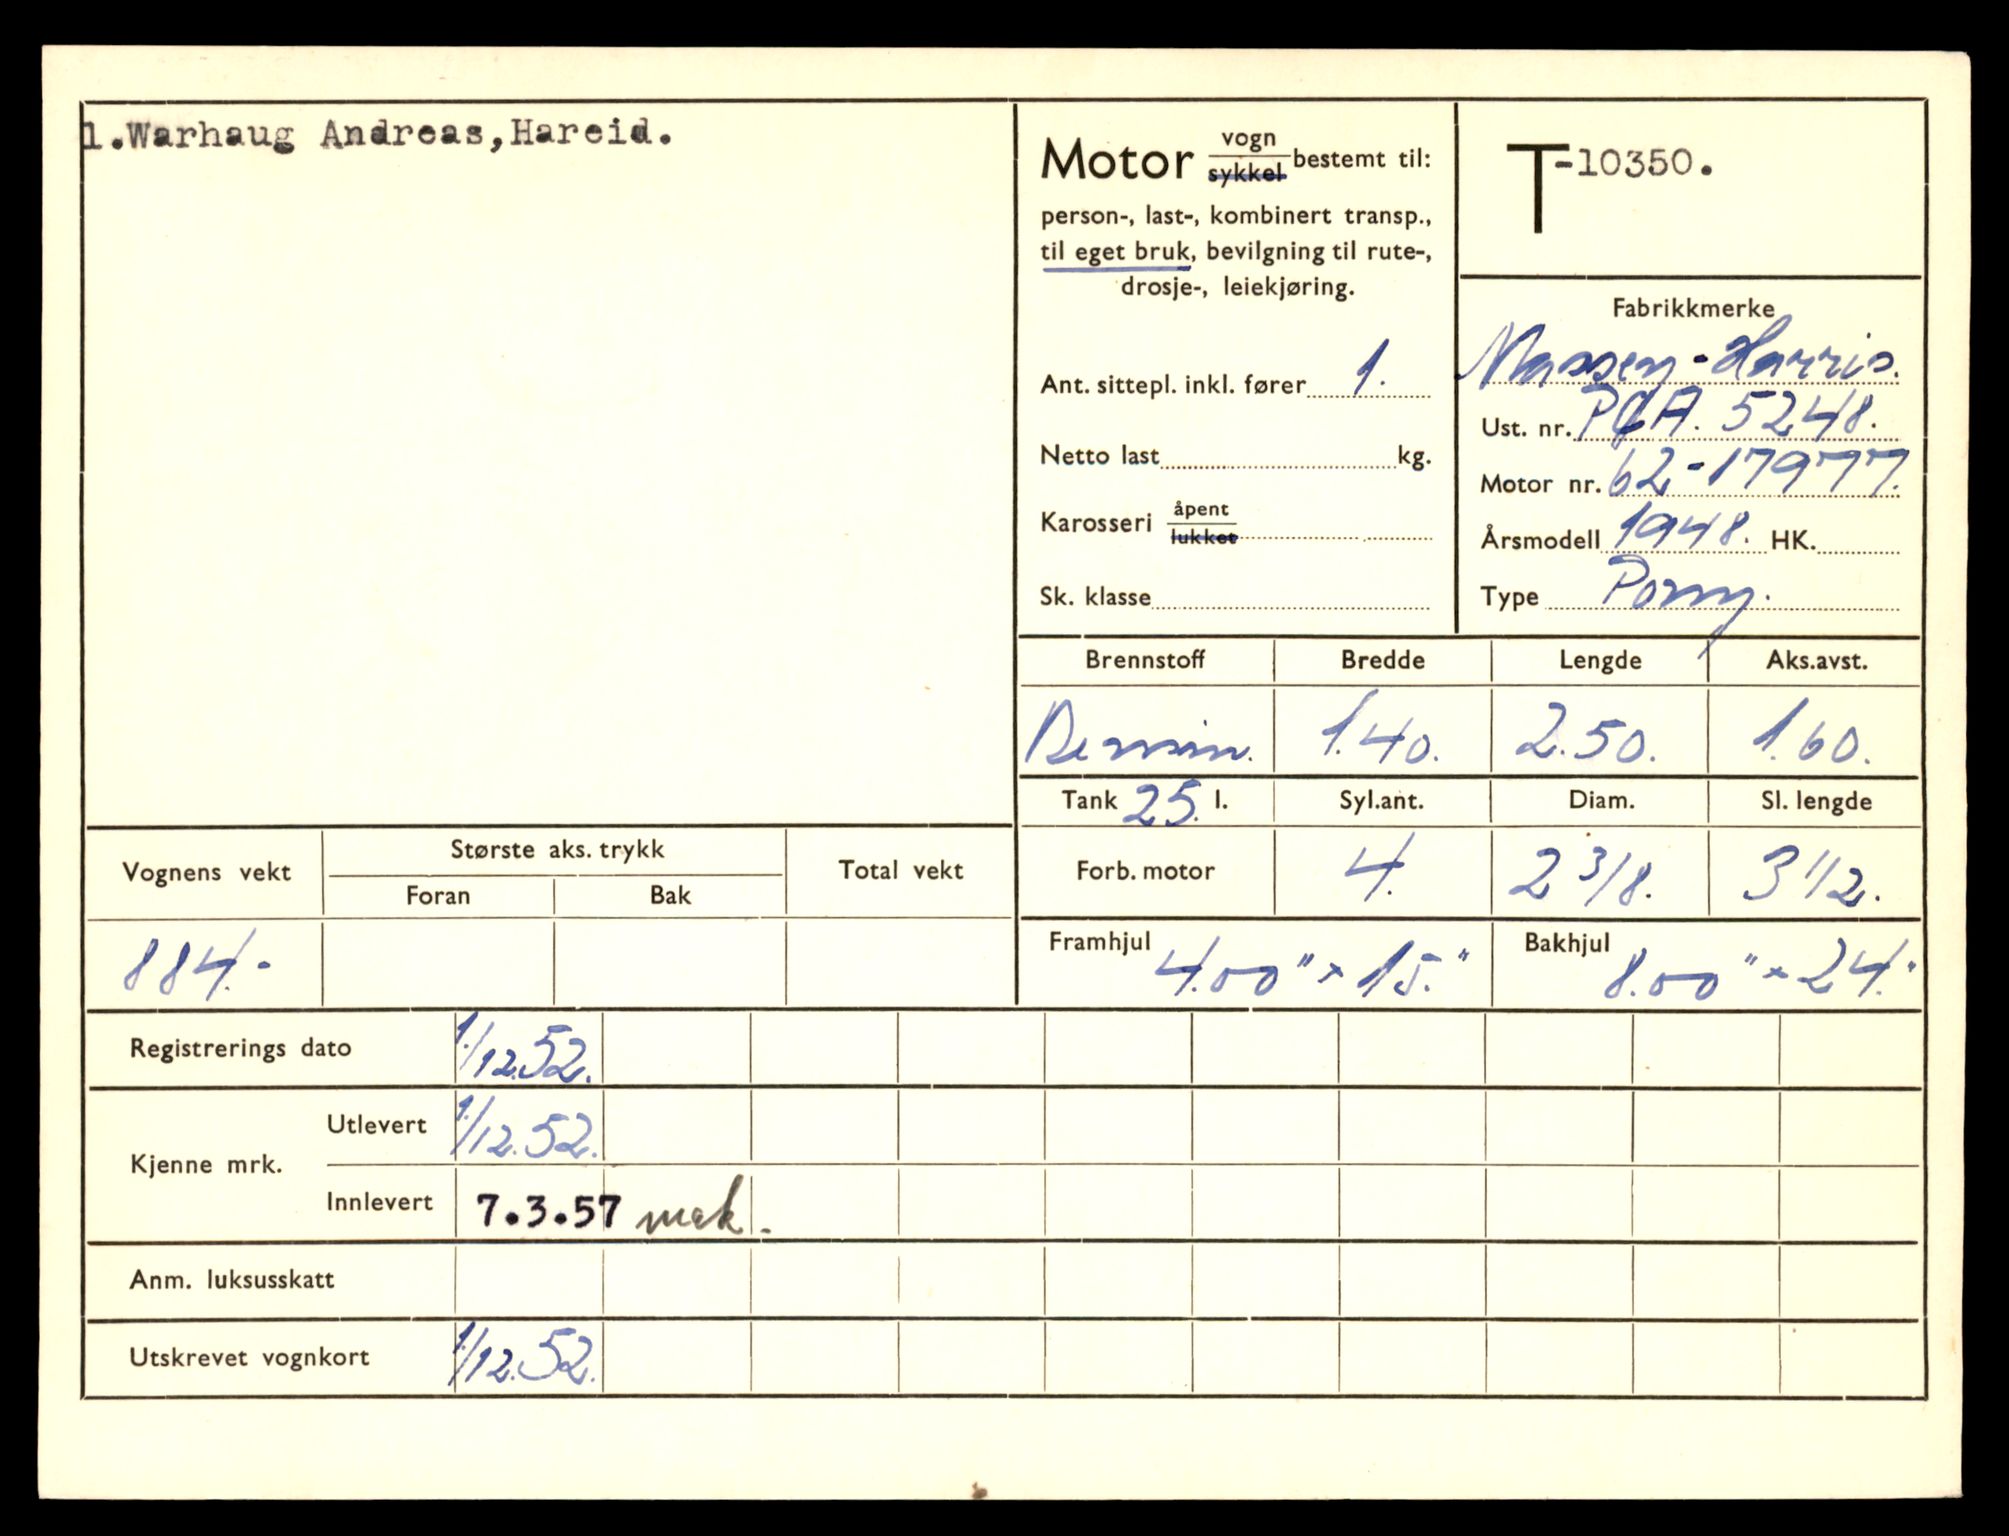 1.Warhaug Andreas,Hareid.
Motor vogn/sykkel bestemt til:
person-, last-, kombinert transp.,
til eget bruk, bevilgning til rute-,
drosje-, leiekjøring.
Ant. sittepl. inkl. fører 1.
Netto last kg.
Karosseri åpent/lukket
Sk. klasse
T-10350.
Fabrikkmerke
Massey-Harris.
Ust. nr. PGA. 5248.
Motor nr. 62-17977.
Årsmodell 1948. HK.
Type Pony.
Brennstoff Bredde Lengde Aks.avst.
Bensin. 1.40. 2.50. 1.60.
Tank 25. l. Syl.ant. Diam. Sl. lengde
Forb. motor 4. 2 3/8. 3 1/2.
Framhjul 4.00" x 15." Bakhjul 8.00" x 24."
Vognens vekt Største aks. trykk Total vekt
Foran Bak
884.-
Registrerings dato 1./12.52.
Kjenne mrk. Utlevert 1./12.52.
Innlevert 7.3.57 mek.
Anm. luksusskatt
Utskrevet vognkort 1./12.52.